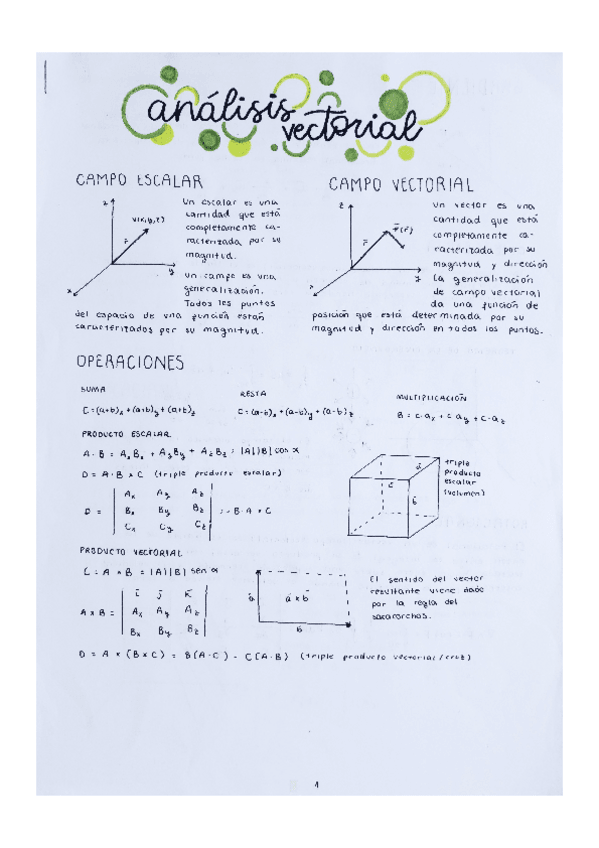 análisis
vectorial
CAMPO ESCALAR
z
V(x,y,z)
r
y
x
Un escalar es una
cantidad que está
completamente ca-
racterizada por su
magnitud.
Un campo es una
generalización.
Todos los puntos
del espacio de una función están
caracterizados por su magnitud.
CAMPO VECTORIAL
z
r
y
x
Un vector es una
cantidad que está
completamente ca-
racterizada por su
magnitud y dirección
La generalización
de campo vectorial
da una función de
posición que está determinada por su
magnitud y dirección en todos los puntos.
OPERACIONES
SUMA
C = (a+b)x + (a+b)y + (a+b)z
RESTA
C = (a-b)x + (a-b)y + (a-b)z
MULTIPLICACIÓN
B = c·ax + c ay + c·az
PRODUCTO ESCALAR
A · B = AxBx + AyBy + AzBz = |A||B| cos α
D = A · B × C (triple producto escalar)
D = | Ax Ay Az |
| Bx By Bz |
| Cx Cy Cz |
B · A × C
triple
producto
escalar
(volumen)
PRODUCTO VECTORIAL
C = A × B = |A||B| sen α
A × B = | i j k |
| Ax Ay Az |
| Bx By Bz |
a
a × b
b
El sentido del vector
resultante viene dado
por la regla del
sacacorchos.
D = A × (B × C) = B(A·C) - C(A·B) (triple producto vectorial/cruz)
1